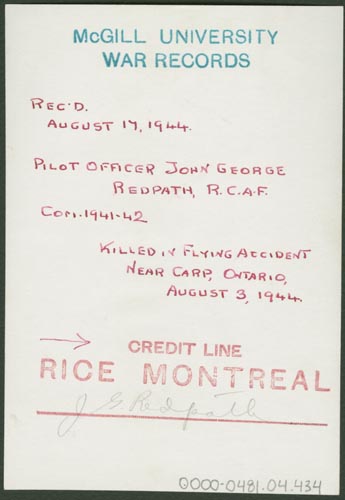 McGILL UNIVERSITY
WAR RECORDS
REC'D.
AUGUST 17, 1944.
PILOT OFFICER JOHN GEORGE
REDPATH, R.C.A.F.
COM. 1941-42
KILLED IN FLYING ACCIDENT
NEAR CARP, ONTARIO,
AUGUST 3, 1944.
CREDIT LINE
RICE MONTREAL
J G Redpath
0000-0481.04.434